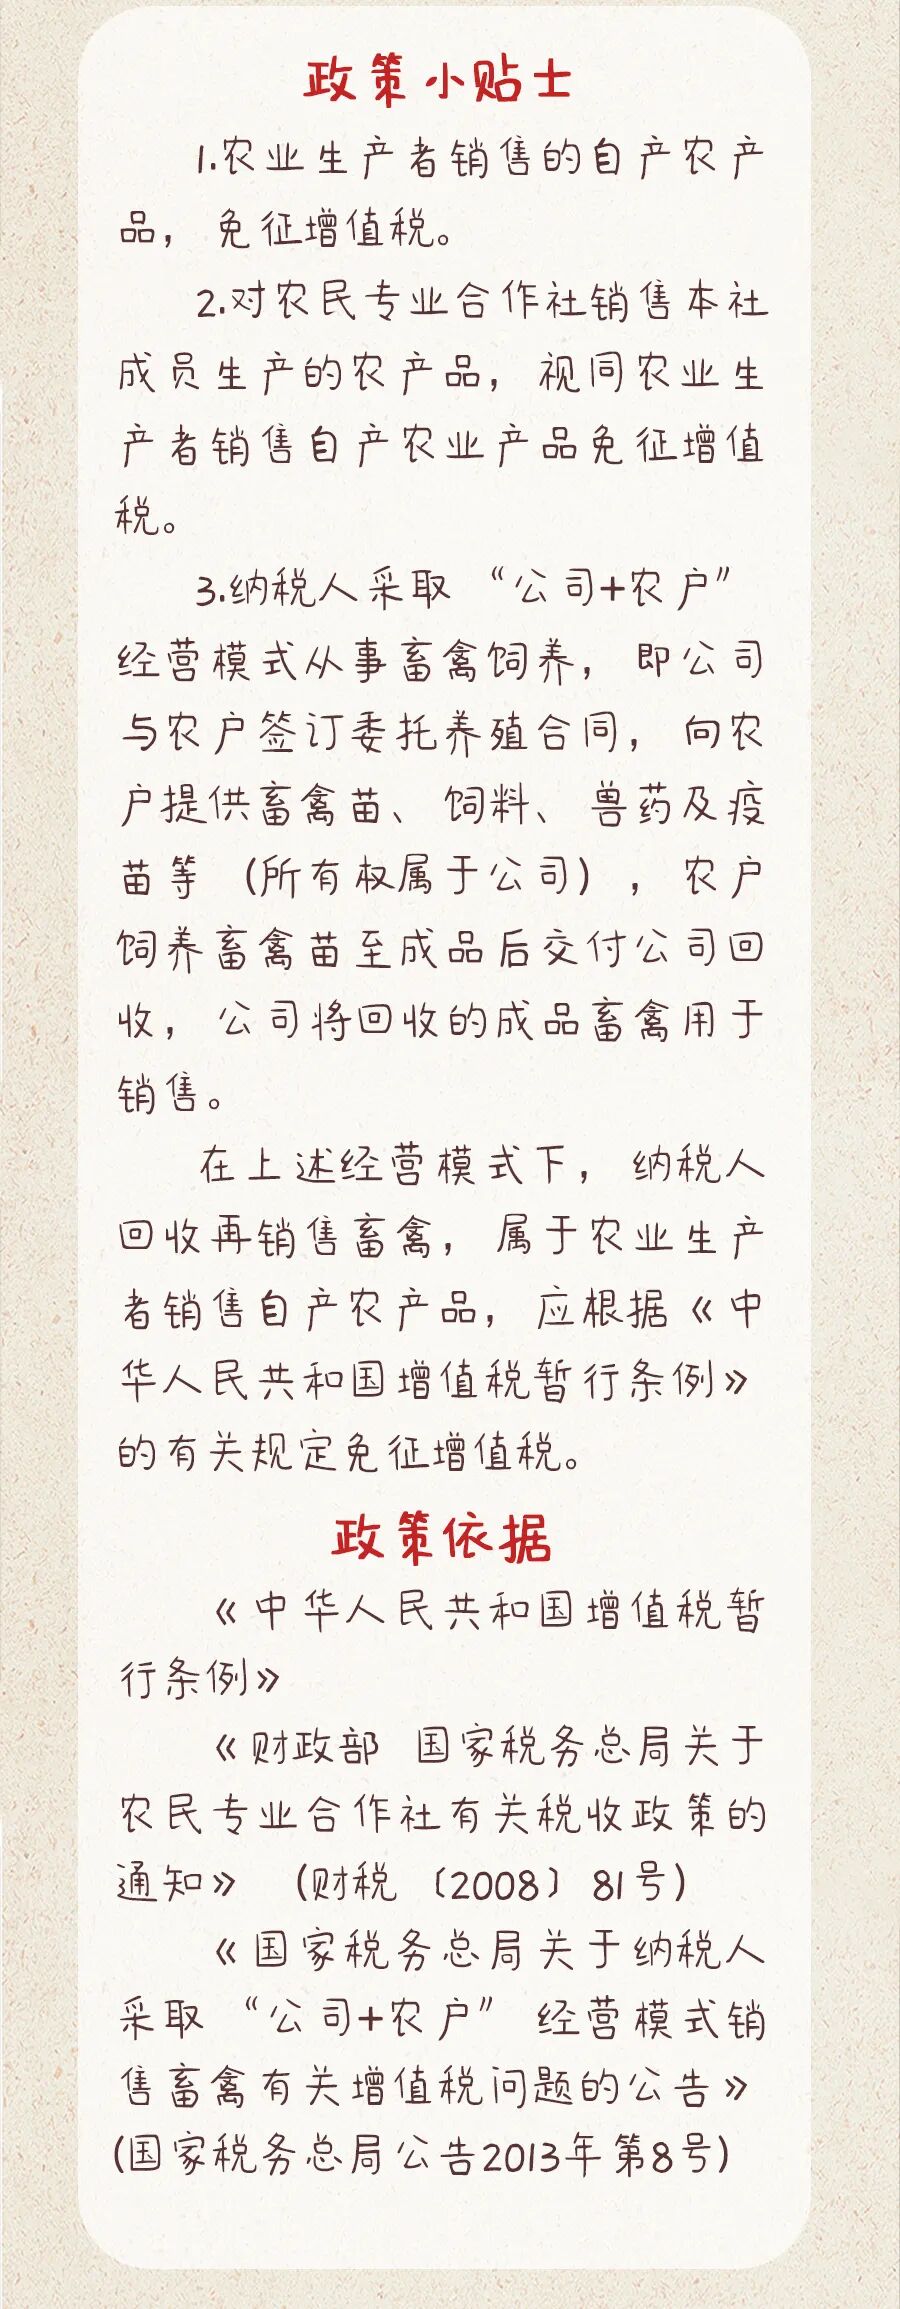 政策小贴士
1.农业生产者销售的自产农产
品，免征增值税。
2.对农民专业合作社销售本社
成员生产的农产品，视同农业生
产者销售自产农业产品免征增值
税。
3.纳税人采取“公司+农户”
经营模式从事畜禽饲养，即公司
与农户签订委托养殖合同，向农
户提供畜禽苗、饲料、兽药及疫
苗等（所有权属于公司），农户
饲养畜禽苗至成品后交付公司回
收，公司将回收的成品畜禽用于
销售。
在上述经营模式下，纳税人
回收再销售畜禽，属于农业生产
者销售自产农产品，应根据《中
华人民共和国增值税暂行条例》
的有关规定免征增值税。
政策依据
《中华人民共和国增值税暂
行条例》
《财政部 国家税务总局关于
农民专业合作社有关税收政策的
通知》（财税〔2008〕81号）
《国家税务总局关于纳税人
采取“公司+农户”经营模式销
售畜禽有关增值税问题的公告》
(国家税务总局公告2013年第8号)